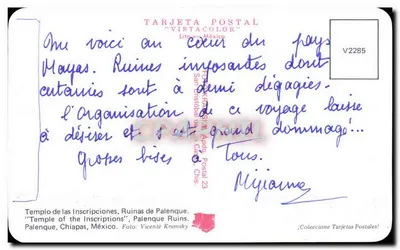 TARJETA POSTAL
"VISTACOLOR"
México
V2285
Me voici au coeur du pays
Mayas. Ruines imposantes dont
certaines sont à demi dégagées.
l'Organisation de ce voyage laisse
à désirer et c'est grand dommage...
Grosses bises à Tous.
Templo de las Inscripciones, Ruinas de Palenque.
"Temple of the Inscriptions", Palenque Ruins.
Palenque, Chiapas, México. Foto: Vicente Kramsky
¡Coleccione Tarjetas Postales!
Postal 23
Chis.